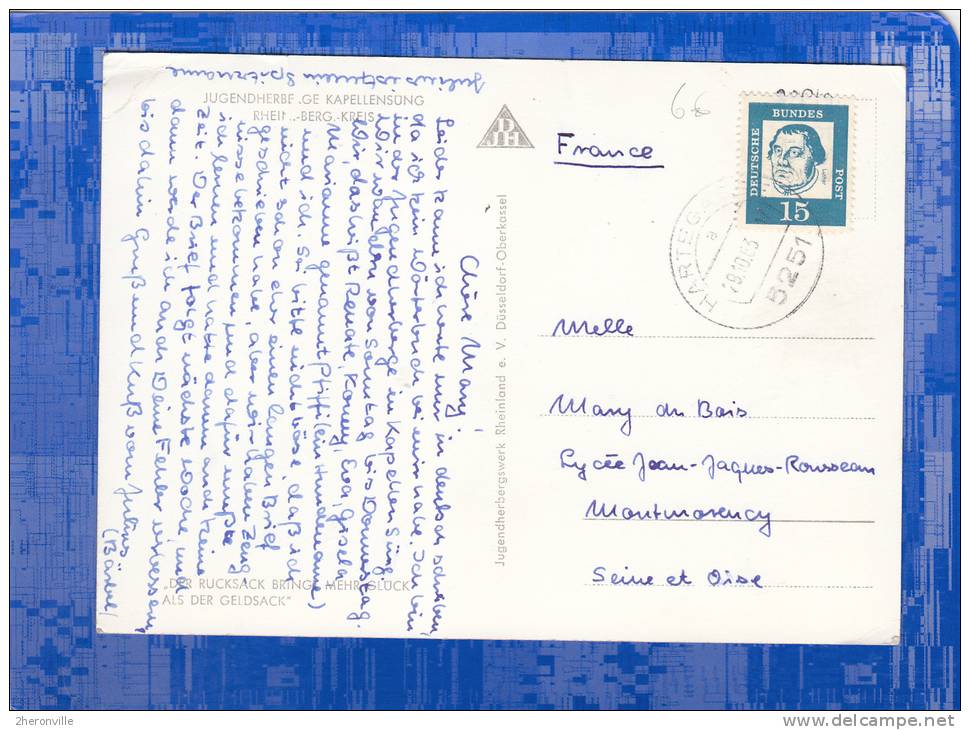 JUGENDHERBE .GE KAPELLENSÜNG
RHEIN.-BERG.-KREIS
Chère Mary!
Leider kann ich heute nur in deutsch schreiben,
da ich kein Wörterbuch bei mir habe. Ich bin
in der Jugendherberge in Kapellensüng.
Wir wohnen von Sonntag bis Donnerstag.
Wir, das heißt Renate, Konny, Eva, Gisela
Marianne (genannt Pfiffi, ein Hundename)
und ich. Sei bitte nicht böse, daß ich
nicht schon eher einen langen Brief
geschrieben habe, aber wir haben Zeug-
nisse bekommen und dafür mußte
ich lernen und hatte dann auch keine
Zeit. Der Brief folgt nächste Woche, und
dann werde ich auch Deine Fehler verbessern,
bis dahin Gruß und Kuß von Julius
(Bärbel)
Julius ist mein Spitzname
„DER RUCKSACK BRINGT MEHR GLÜCK
ALS DER GELDSACK"
Jugendherbergswerk Rheinland e. V. Düsseldorf-Oberkassel
DJH
6€
France
DEUTSCHE BUNDES POST
15
HARTEG
a
29.10.63
5251
Melle
Mary du Bois
Lycée Jean-Jaques-Rousseau
Montmorency
Seine et Oise
2heronville
www.delcampe.net